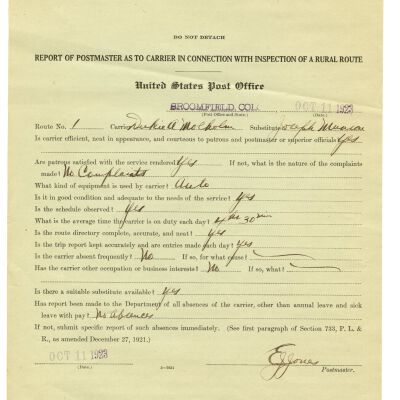 DO NOT DETACH
REPORT OF POSTMASTER AS TO CARRIER IN CONNECTION WITH INSPECTION OF A RURAL ROUTE
United States Post Office
BROOMFIELD, COL. OCT 11 1923
(Post Office and State.) (Date.)
Route No. 1 Carrier Molholm Substitute Joseph
Is carrier efficient, neat in appearance, and courteous to patrons and postmaster or superior officials? Yes
Are patrons satisfied with the service rendered? Yes If not, what is the nature of the complaints
made? No Complaints
What kind of equipment is used by carrier? Auto
Is it in good condition and adequate to the needs of the service? Yes
Is the schedule observed? Yes
What is the average time the carrier is on duty each day? 4 hrs 30 min
Is the route directory complete, accurate, and neat? yes
Is the trip report kept accurately and are entries made each day? yes
Is the carrier absent frequently? No If so, for what cause?
Has the carrier other occupation or business interests? No If so, what?
Is there a suitable substitute available? Yes
Has report been made to the Department of all absences of the carrier, other than annual leave and sick
leave with pay? No Absences
If not, submit specific report of such absences immediately. (See first paragraph of Section 733, P. L. &
R., as amended December 27, 1921.)
OCT 11 1923 Jones
(Date.) Postmaster.